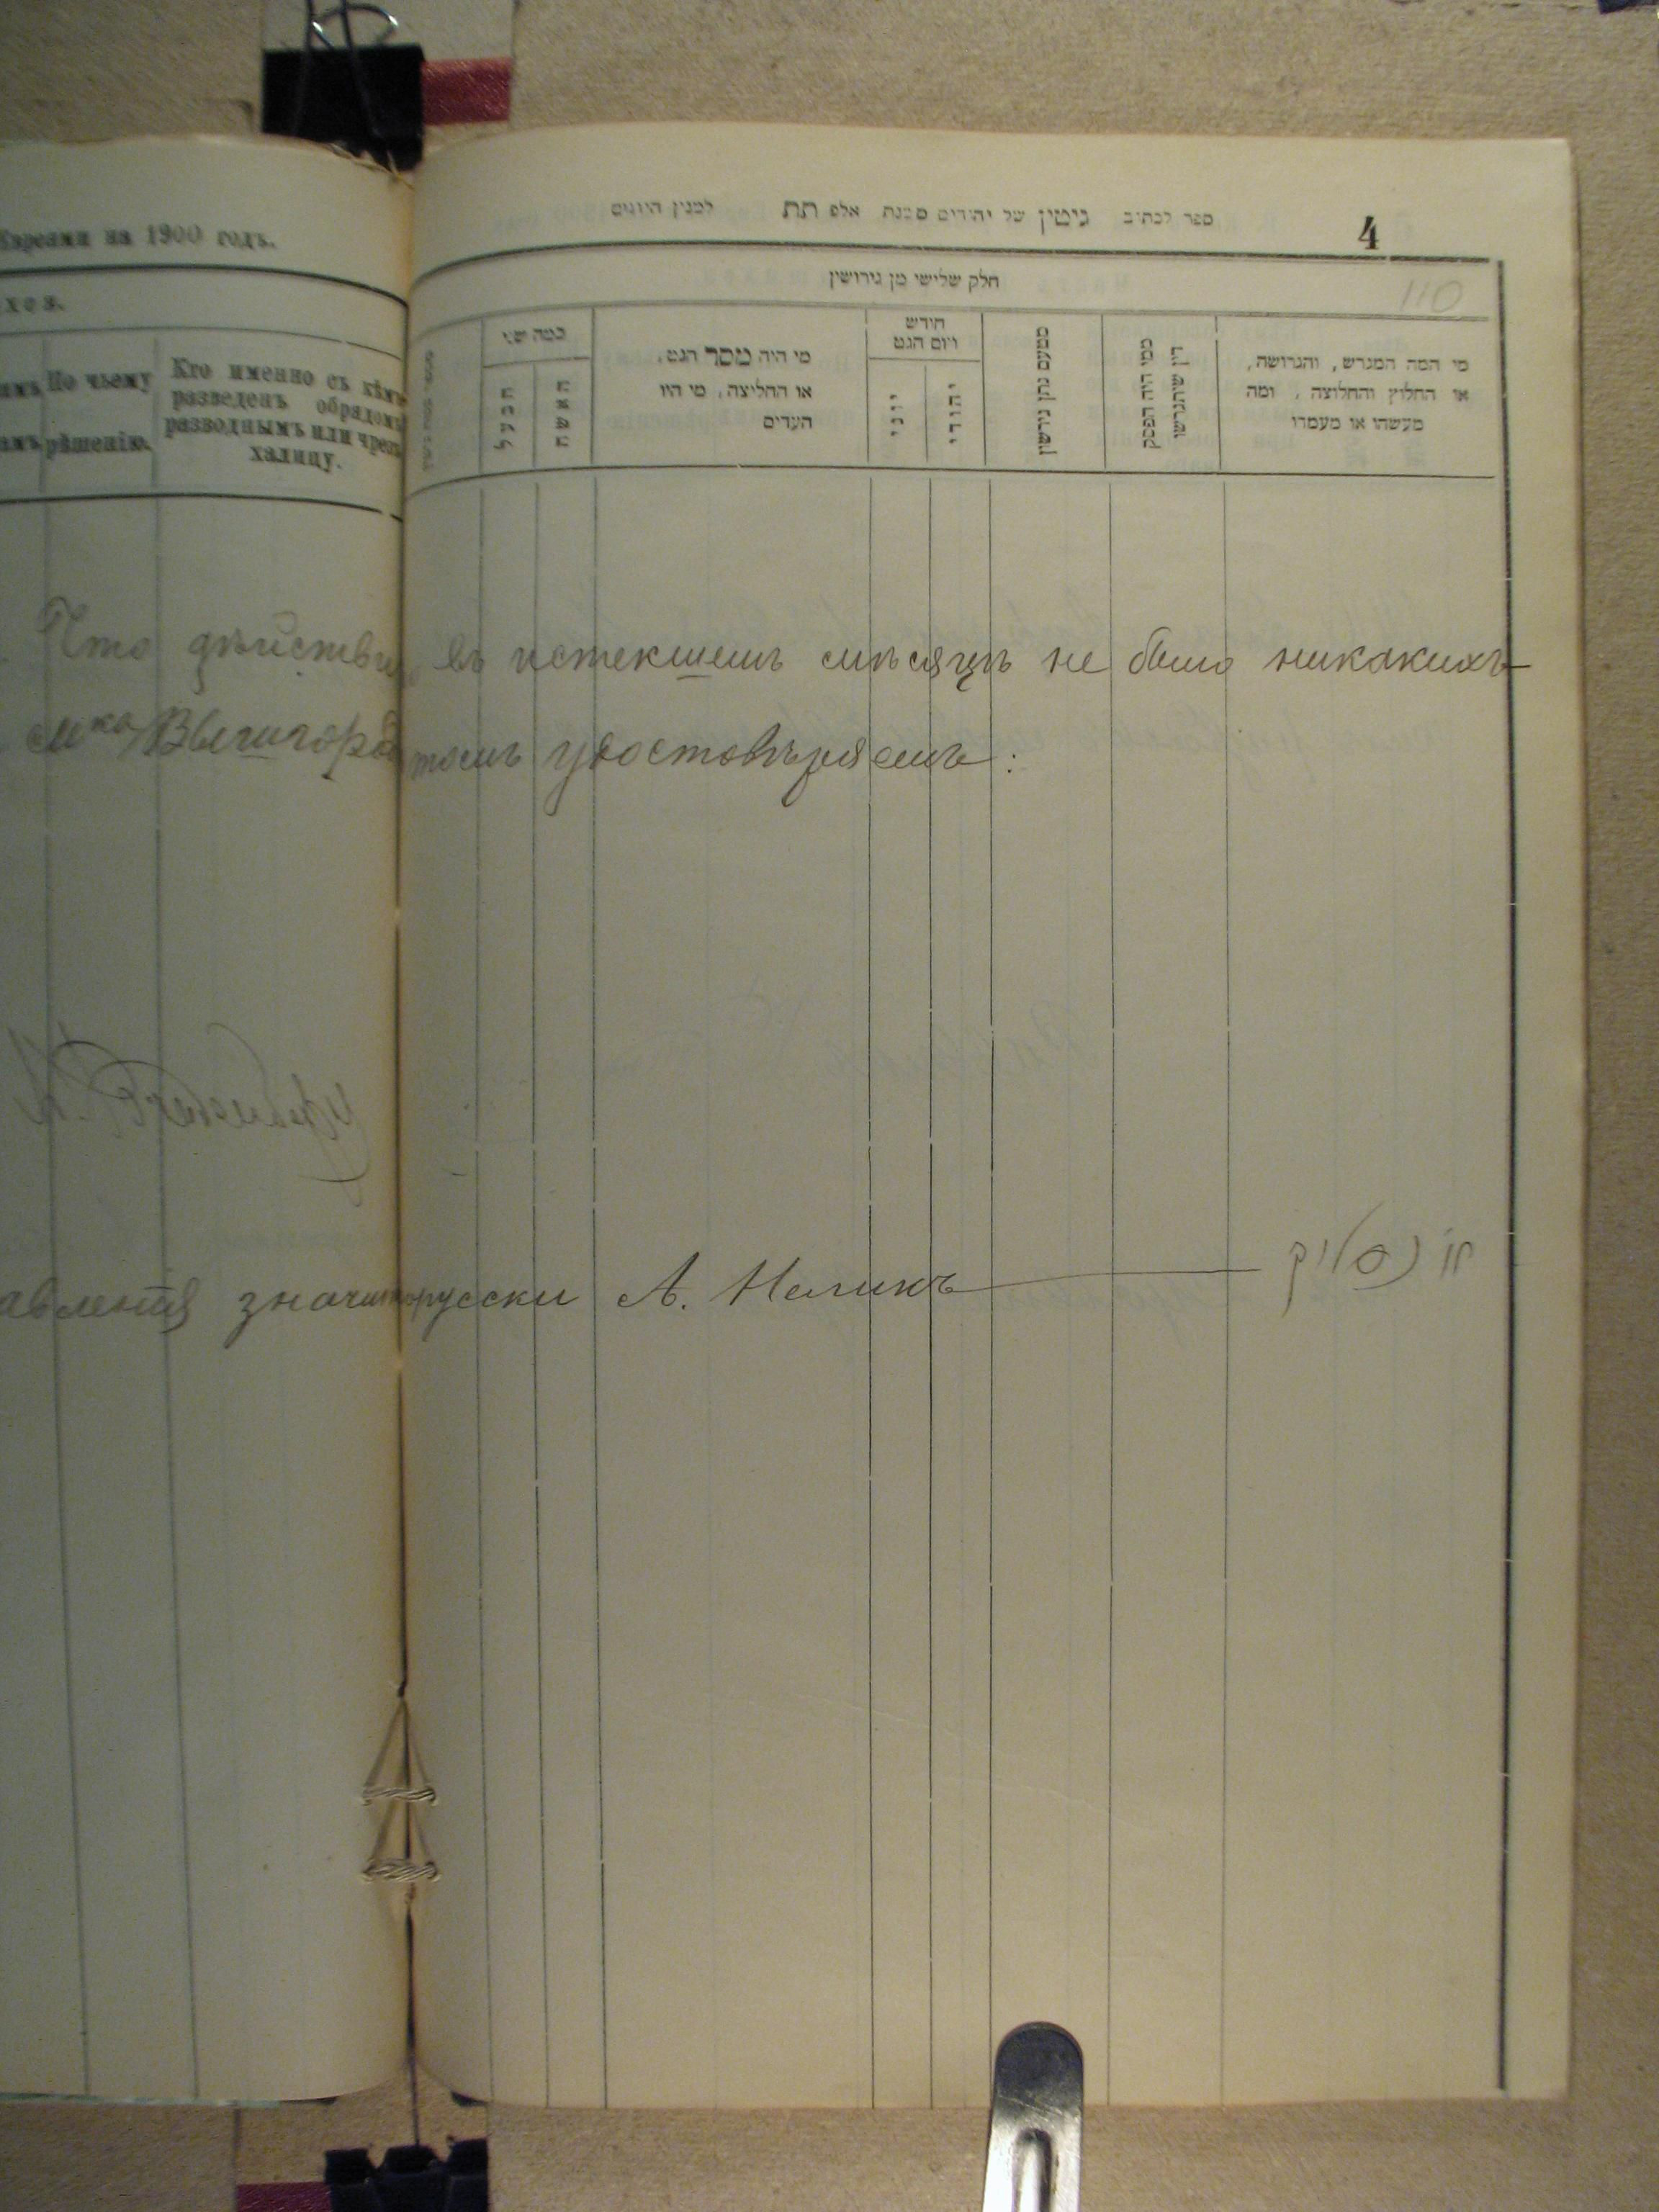 Евреями на 1900 годъ.
По чьему
рѣшенію.
Кто именно съ кѣмъ
разведенъ обрядомъ
разводнымъ или чрезъ
халицу.
4
110
ספר לכתוב גיטין של יהודים משנת אלפ תת למנין היונים
חלק שלישי מן גירושין
מי המה המגרש, והגרושה,
או החלוץ והחלוצה, ומה
מעשהו או מעמדו
ממי היה הפסק
דין שיתגרשו
מטעם נתן גירושין
חודש
ויום הגט
יהודי
יוני
מי היה מסר הגט,
או החליצה, מי היו
העדים
כמה שני
האשה
הבעל
Что дѣйствій въ истекшемъ мѣсяцѣ не было никакихъ
м-ка Вышгород томъ удостовѣряемъ:
русски А. Меликъ